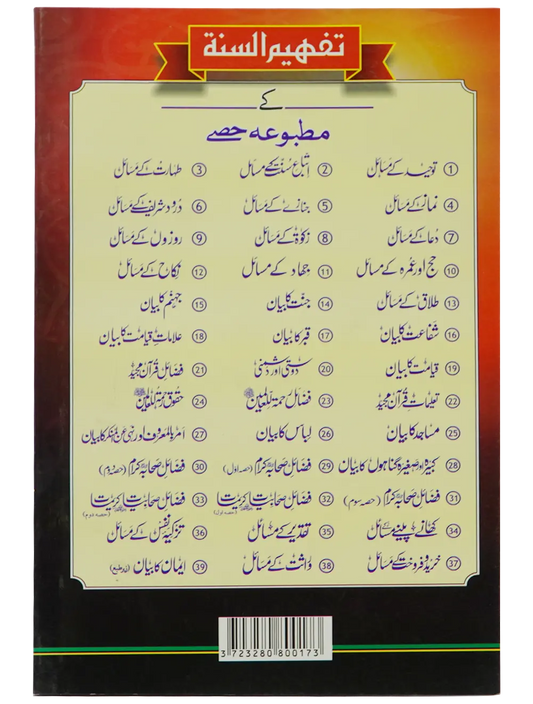 تفہیم السنۃ
کے
مطبوعہ حصے
① توحید کے مسائل ② اتباع سنت کے مسائل ③ طہارت کے مسائل
④ نماز کے مسائل ⑤ جنازے کے مسائل ⑥ درود شریف کے مسائل
⑦ دعا کے مسائل ⑧ زکوٰۃ کے مسائل ⑨ روزوں کے مسائل
⑩ حج اور عمرہ کے مسائل ⑪ جہاد کے مسائل ⑫ نکاح کے مسائل
⑬ طلاق کے مسائل ⑭ جنت کا بیان ⑮ جہنم کا بیان
⑯ شفاعت کا بیان ⑰ قبر کا بیان ⑱ علامات قیامت کا بیان
⑲ قیامت کا بیان ⑳ دوستی اور دشمنی ㉑ فضائل قرآن مجید
㉒ تعلیمات قرآن مجید ㉓ فضائل رحمۃ للعالمین ㉔ حقوق رحمۃ للعالمین
㉕ مساجد کا بیان ㉖ لباس کا بیان ㉗ امر بالمعروف اور نہی عن المنکر کا بیان
㉘ کبیرہ اور صغیرہ گناہوں کا بیان ㉙ فضائل صحابہ کرام (حصہ اول) ㉚ فضائل صحابہ کرام (حصہ دوم)
㉛ فضائل صحابہ کرام (حصہ سوم) ㉜ فضائل صحابیات (حصہ اول) ㉝ فضائل صحابیات (حصہ دوم)
㉞ کھانے پینے کے مسائل ㉟ تقدیر کے مسائل ㊱ تزکیہ نفس کے مسائل
㊲ خرید و فروخت کے مسائل ㊳ وراثت کے مسائل ㊴ ایمان کا بیان (زیر طبع)
3 723280 800173